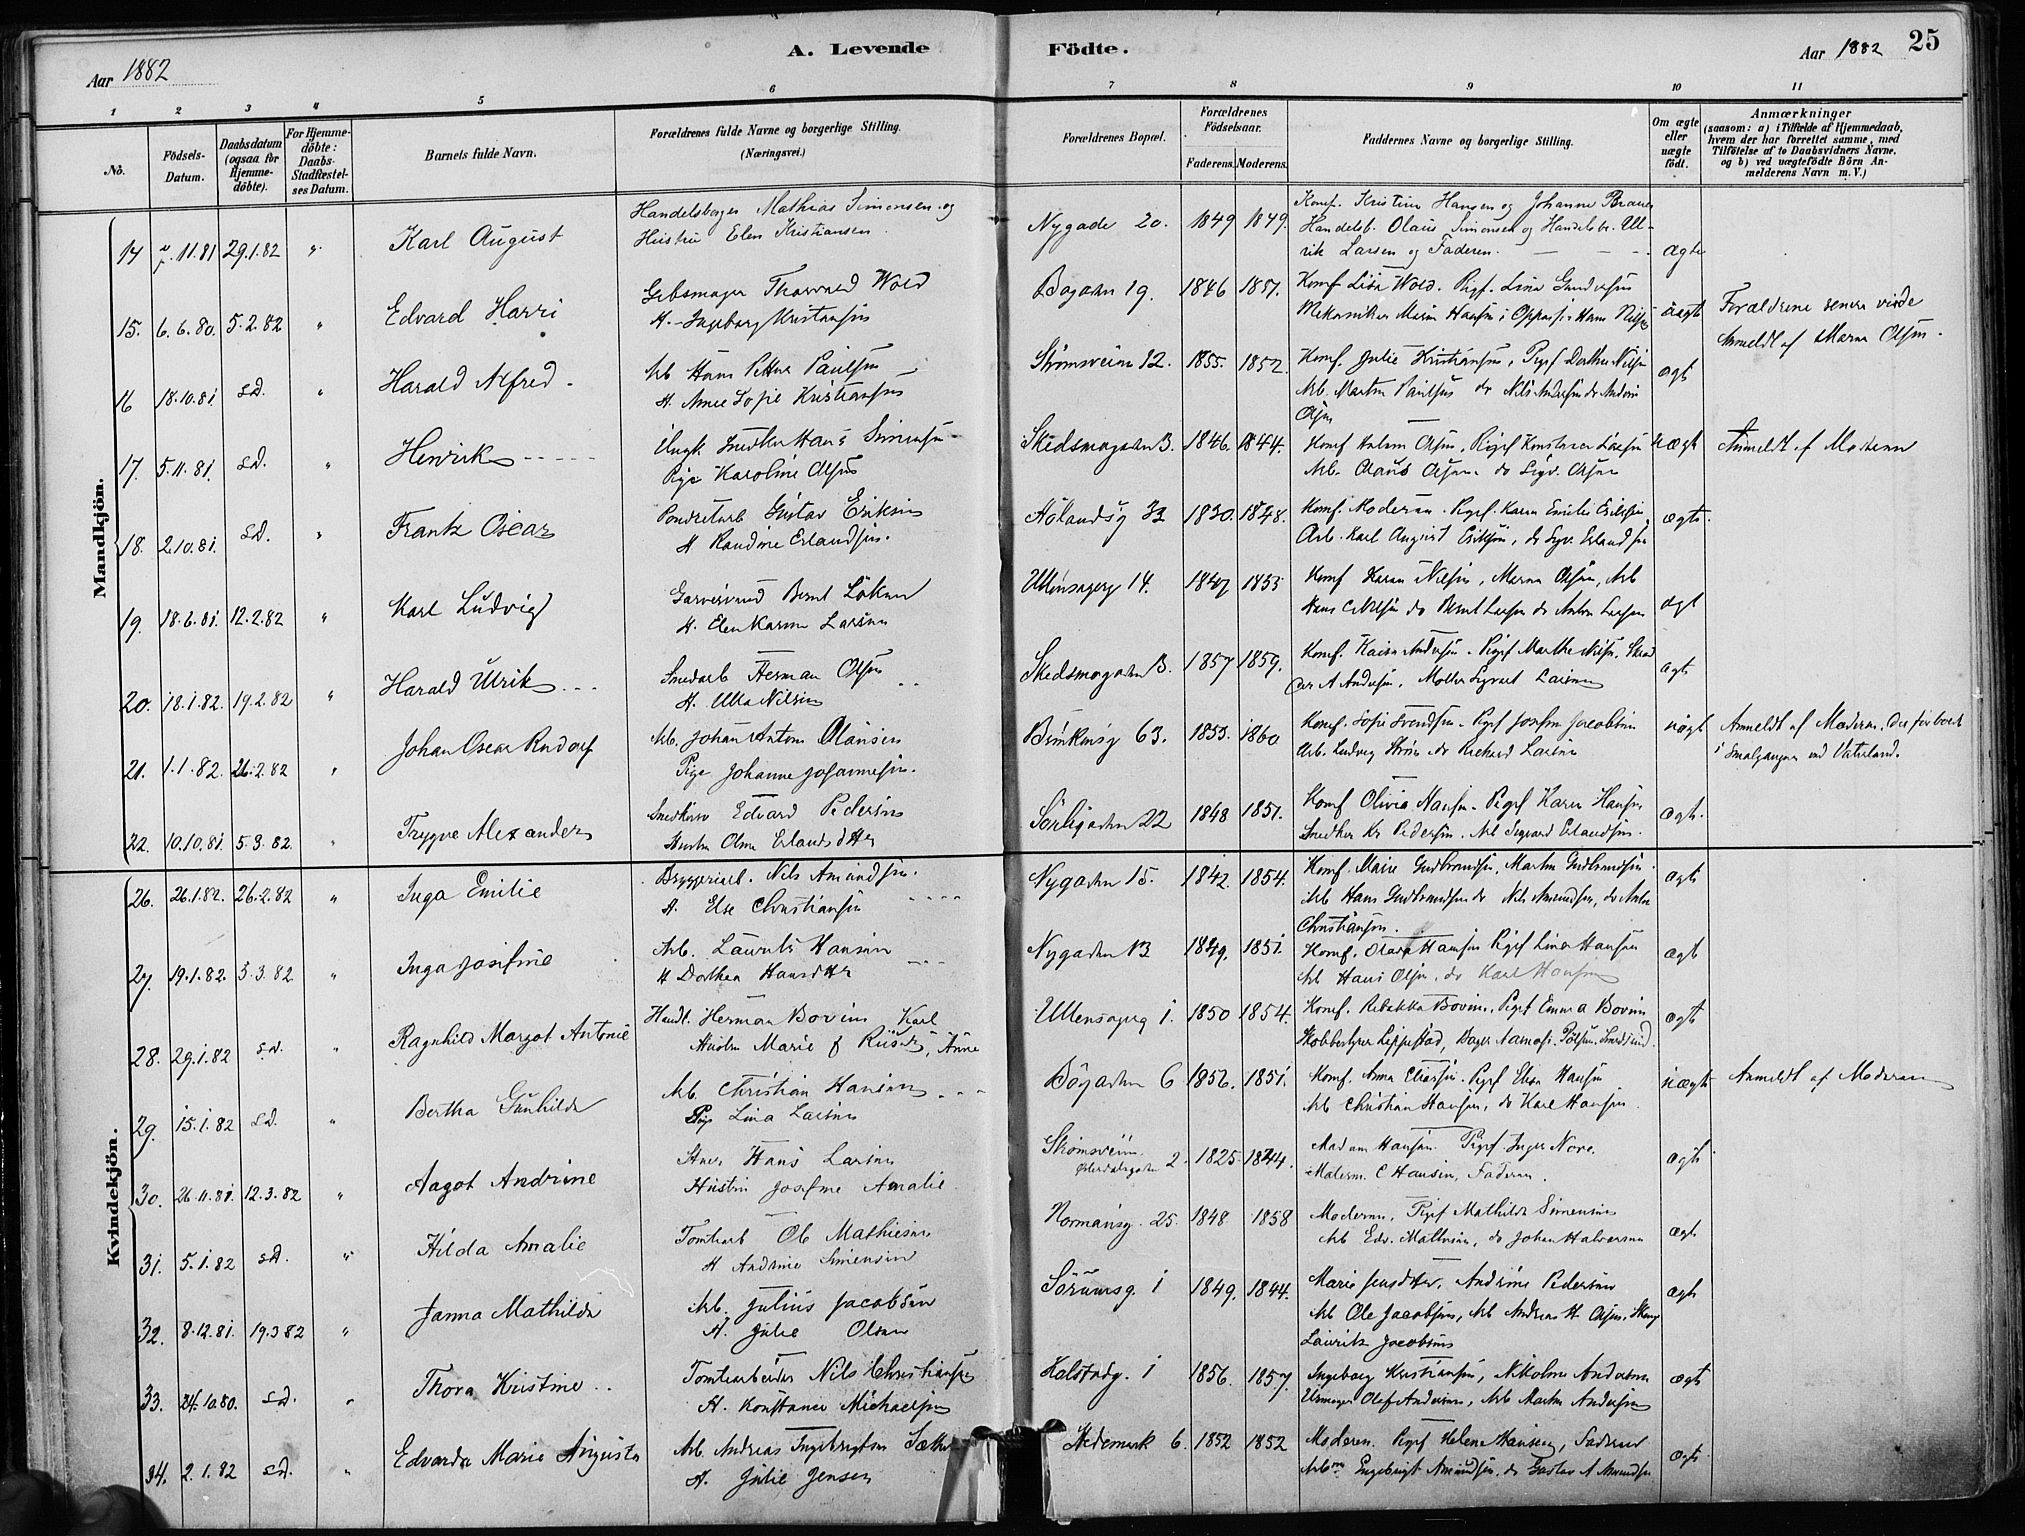 A. Levende Födte.
25
Aar 1882
Aar 1882
1 2 3 4 5 6 7 8 9 10 11
No.
Födsels-
Datum.
Daabsdatum
(ogsaa for
Hjemme-
döbte).
For Hjemme-
döbte:
Daabs-
Stadfæstel-
ses Datum.
Barnets fulde Navn.
Forældrenes fulde Navne og borgerlige Stilling.
(Næringsvei.)
Forældrenes Bopæl.
Forældrenes
Födselsaar.
Faderens. Moderens.
Faddernes Navne og borgerlige Stilling.
Om ægte
eller
uægte
födt.
Anmærkninger
(saasom: a) i Tilfælde af Hjemmedaab,
hvem der har forrettet samme, med
Tilföielse af to Daabsvidners Navne,
og b) ved uægtefödte Börn An-
melderens Navn m. V.)
Mandkjön.
Handelsborger Mathias Simensen og
14 11.81 29.1.82 " Karl August Hustru Elen Kristiansen
Nygade 20. 1849 1849.
Komf. Kristine Hansen og Johanne
Handelsb. Olaus Simensen og Handelsb. Ul-
rik Larsen og Faderen. ægte
15. 6.6.80. 5.2.82 " Edvard Harri
Gibsmager Thorvald Wold
H. Ingeborg Kristiansen
19. 1846 1851.
Komf. Lisa Wold. Pigf. Lina Gundersen
uægte
Forældrene senere viede
Anmeldt af Maren Olsen.
16 18.10.81. s.D. " Harald Alfred
Arb. Hans Petter Paulsen
H. Anne Sofie Kristiansen
Strømsveien 12. 1855. 1852.
Komf. Julie Kristiansen, Pigf Dorthe Nilsen
Arb. Martin Paulsen do Nils Andersen do
Olsen
ægt
17. 5.11.81. s.D. " Henrik
Ungk. Snedker Hans Simensen
Pige Karoline Olsen
Skedsmogaden 13. 1846. 1844.
Arb. Olaus Olsen do Sigv. Olsen
uægt Anmeldt af Moderen
18. 2.10.81. s.D. " Frantz Oscar
Gustav Eriksen
H Randine Erlandsen.
Hølandsg 33 1830. 1848.
Komf. Moderen Pigf. Karen Emilie Eriksen
Arb. Karl August Eriksen, do Sigv. Erlandsen
ægte.
19. 18.6.81. 12.2.82 " Karl Ludvig
Bernt Løken
H. Elen Karine Larsen
Ullensagerg 14. 1847 1853
Komf Karen Nilsen, Maren Olsen, Arb
Hans C Nilsen do Bernt Larsen do Anton Larsen
ægt
20. 18.1.82. 19.2.82 " Harald Ulrik
Smedarb Herman Olsen
H. Ulla Nilsen
Skedsmogaden 13. 1857 1859.
Komf. Kaisa Andersen. Pigf Marthe Nilsen.
A Andersen, Møller Sigvart Larsen
ægt
21. 1.1.82. 26.2.82 " Johan Oscar Rudolf
Arb. Johan Anton Olausen
Pige Johanne Johannesen.
63. 1853. 1860
Komf. Sofie Svendsen. Pigf Josefine Jacobsen
Arb. Ludvig Strøm do Rickard Larsen
uægt
Anmeldt af Moderen,
i Smalgangen ved Vaterland.
22. 10.10.81. 5.3.82. " Trygve Alexander
Edvard Pedersen
Hustru Oline Erlandsdtr
Sørligaden 22 1848 1851.
Komf Olivia Hansen. Pigf Karen Hansen
Snedker Kr Pedersen. Arb Sigvard Erlandsen.
ægt.
Kvindekjön.
26. 26.1.82. 26.2.82 " Inga Emilie
Bryggeriarb. Nils Amundsen.
H. Else Christiansen
Nygaden 15. 1842. 1854.
Komf. Marie Gudbrandsen, Marthe Gudbrandsen
Arb Hans Gudbrandsen do Nils Amundsen, do Anton
Christiansen.
ægte
27. 19.1.82. 5.3.82 " Inga Josefine
Arb. Laurits Hansen
H Dorthea Hansdtr
Nygaden 13 1849. 1851.
Komf. Hansen Pigf Lina Hansen
Arb Hans Olsen. do Karl Hansen
ægt
28. 29.1.82 s.D. " Ragnhild Margot Antonie
Handl. Herman Bovim Karl
Hustru Marie f Riiser, Anne
Ullensagerg 1. 1850 1854.
Komf. Rebekka Bovim. Pigf Emma Bovim
ægt
29. 15.1.82 s.D. " Bertha Gunhilda
Arb. Christian Hansen
Pige Lina Larsen
Bøgaden 6 1856. 1851.
Komf. Anna Pigf Elisa Hansen
Arb Christian Hansen, do Karl Hansen.
uægt Anmeldt af Moderen
30. 26.11.81. 12.3.82 " Aagot Andrine
Hans Larsen
Hustru Josefine Amalie
Strømsveien
Østerdalsgaden 2. 1825. 1844.
Madam Hansen. Pigf Inger Nore.
Moderen. C Hansen, Faderen.
ægt
31. 5.1.82 s.D. " Hilda Amalie
Tomtearb Ole Mathiesen
H Andrine Simensen
Normansg. 25. 1848 1858
Moderen, Pigf Mathilde Simensen
Arb Edv. Mathiesen, do Johan Halvorsen
ægt
32. 8.12.81. 19.3.82 " Janna Mathilda
Arb. Julius Jacobsen
H. Julie Olsen
Sørumsg. 1 1849. 1844.
Marie Jensdtr, Andrine Pedersen
Arb Ole Jacobsen, Arb Andreas H Olsen,
Lauritz Jacobsen
ægt
33. 24.10.80. s.D. " Thora Kristine
Tomtearbeider Nils Christiansen
H. Konstance Michaelsen
Halstadg. 1 1856. 1857.
Ingeborg Kristiansen, Nikoline Andersen
Urmager Olaf Andersen, Arb Martin Andersen
ægt
34. 2.1.82 s.D. " Edvarda Marie Augusta
Arb Andreas Ingebrigtsen
H. Julie Jensen
Hedemark 6. 1852 1852
Moderen. Pigf Helene Hansen, Faderen
Arb Engebrigt Amundsen, do Gustav A Amundsen
ægt